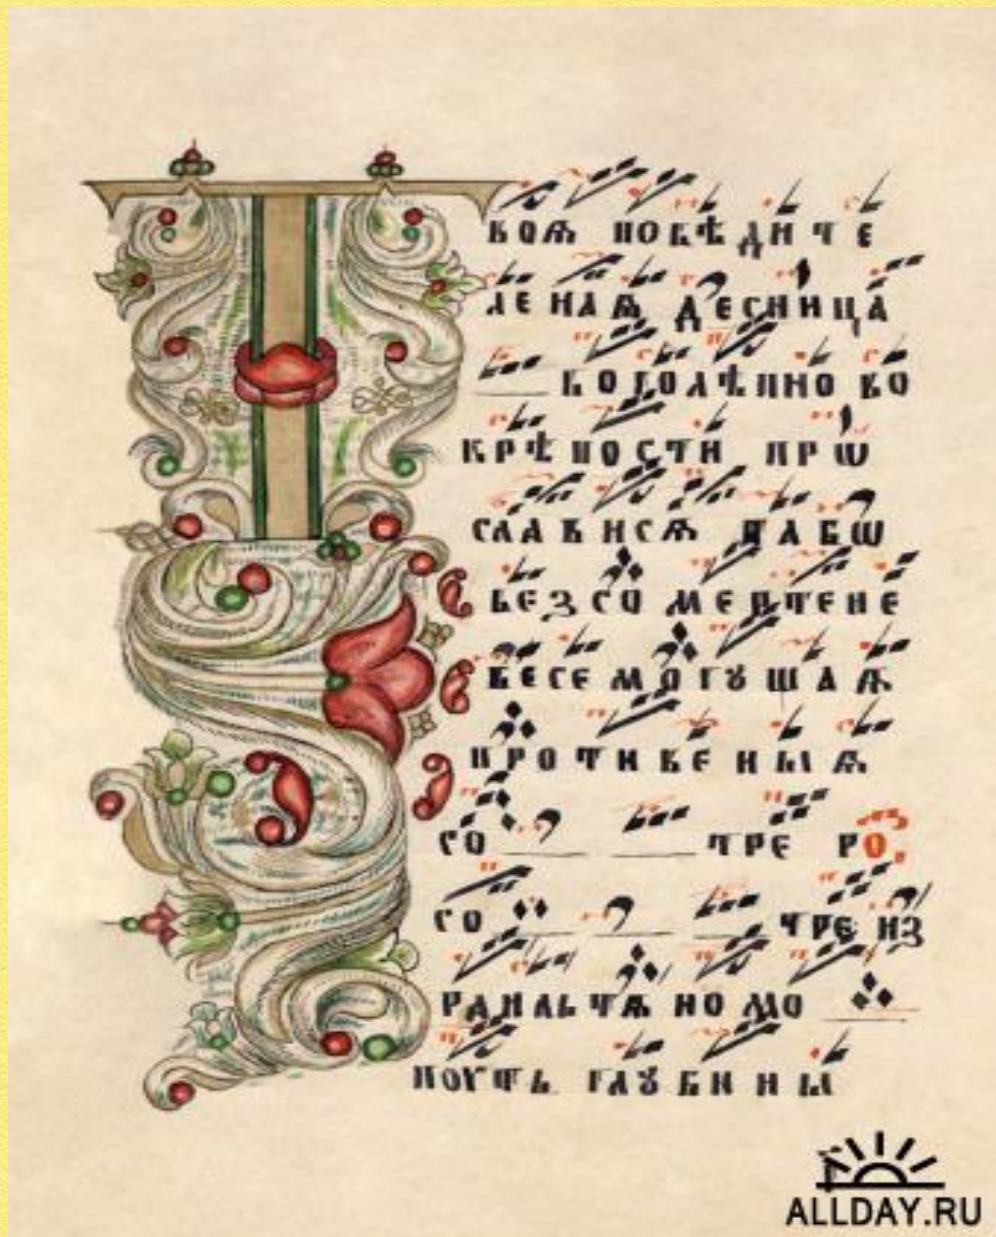 Т
воѧ побѣдиче
ленаѧ десница
боголѣпно во
крѣпости прѡ
слависѧ
без со мертене
весемогꙋщаѧ
противеныѧ
со тре ро.
со тре из
раильтѧномо
поуть глꙋбины
ALLDAY.RU